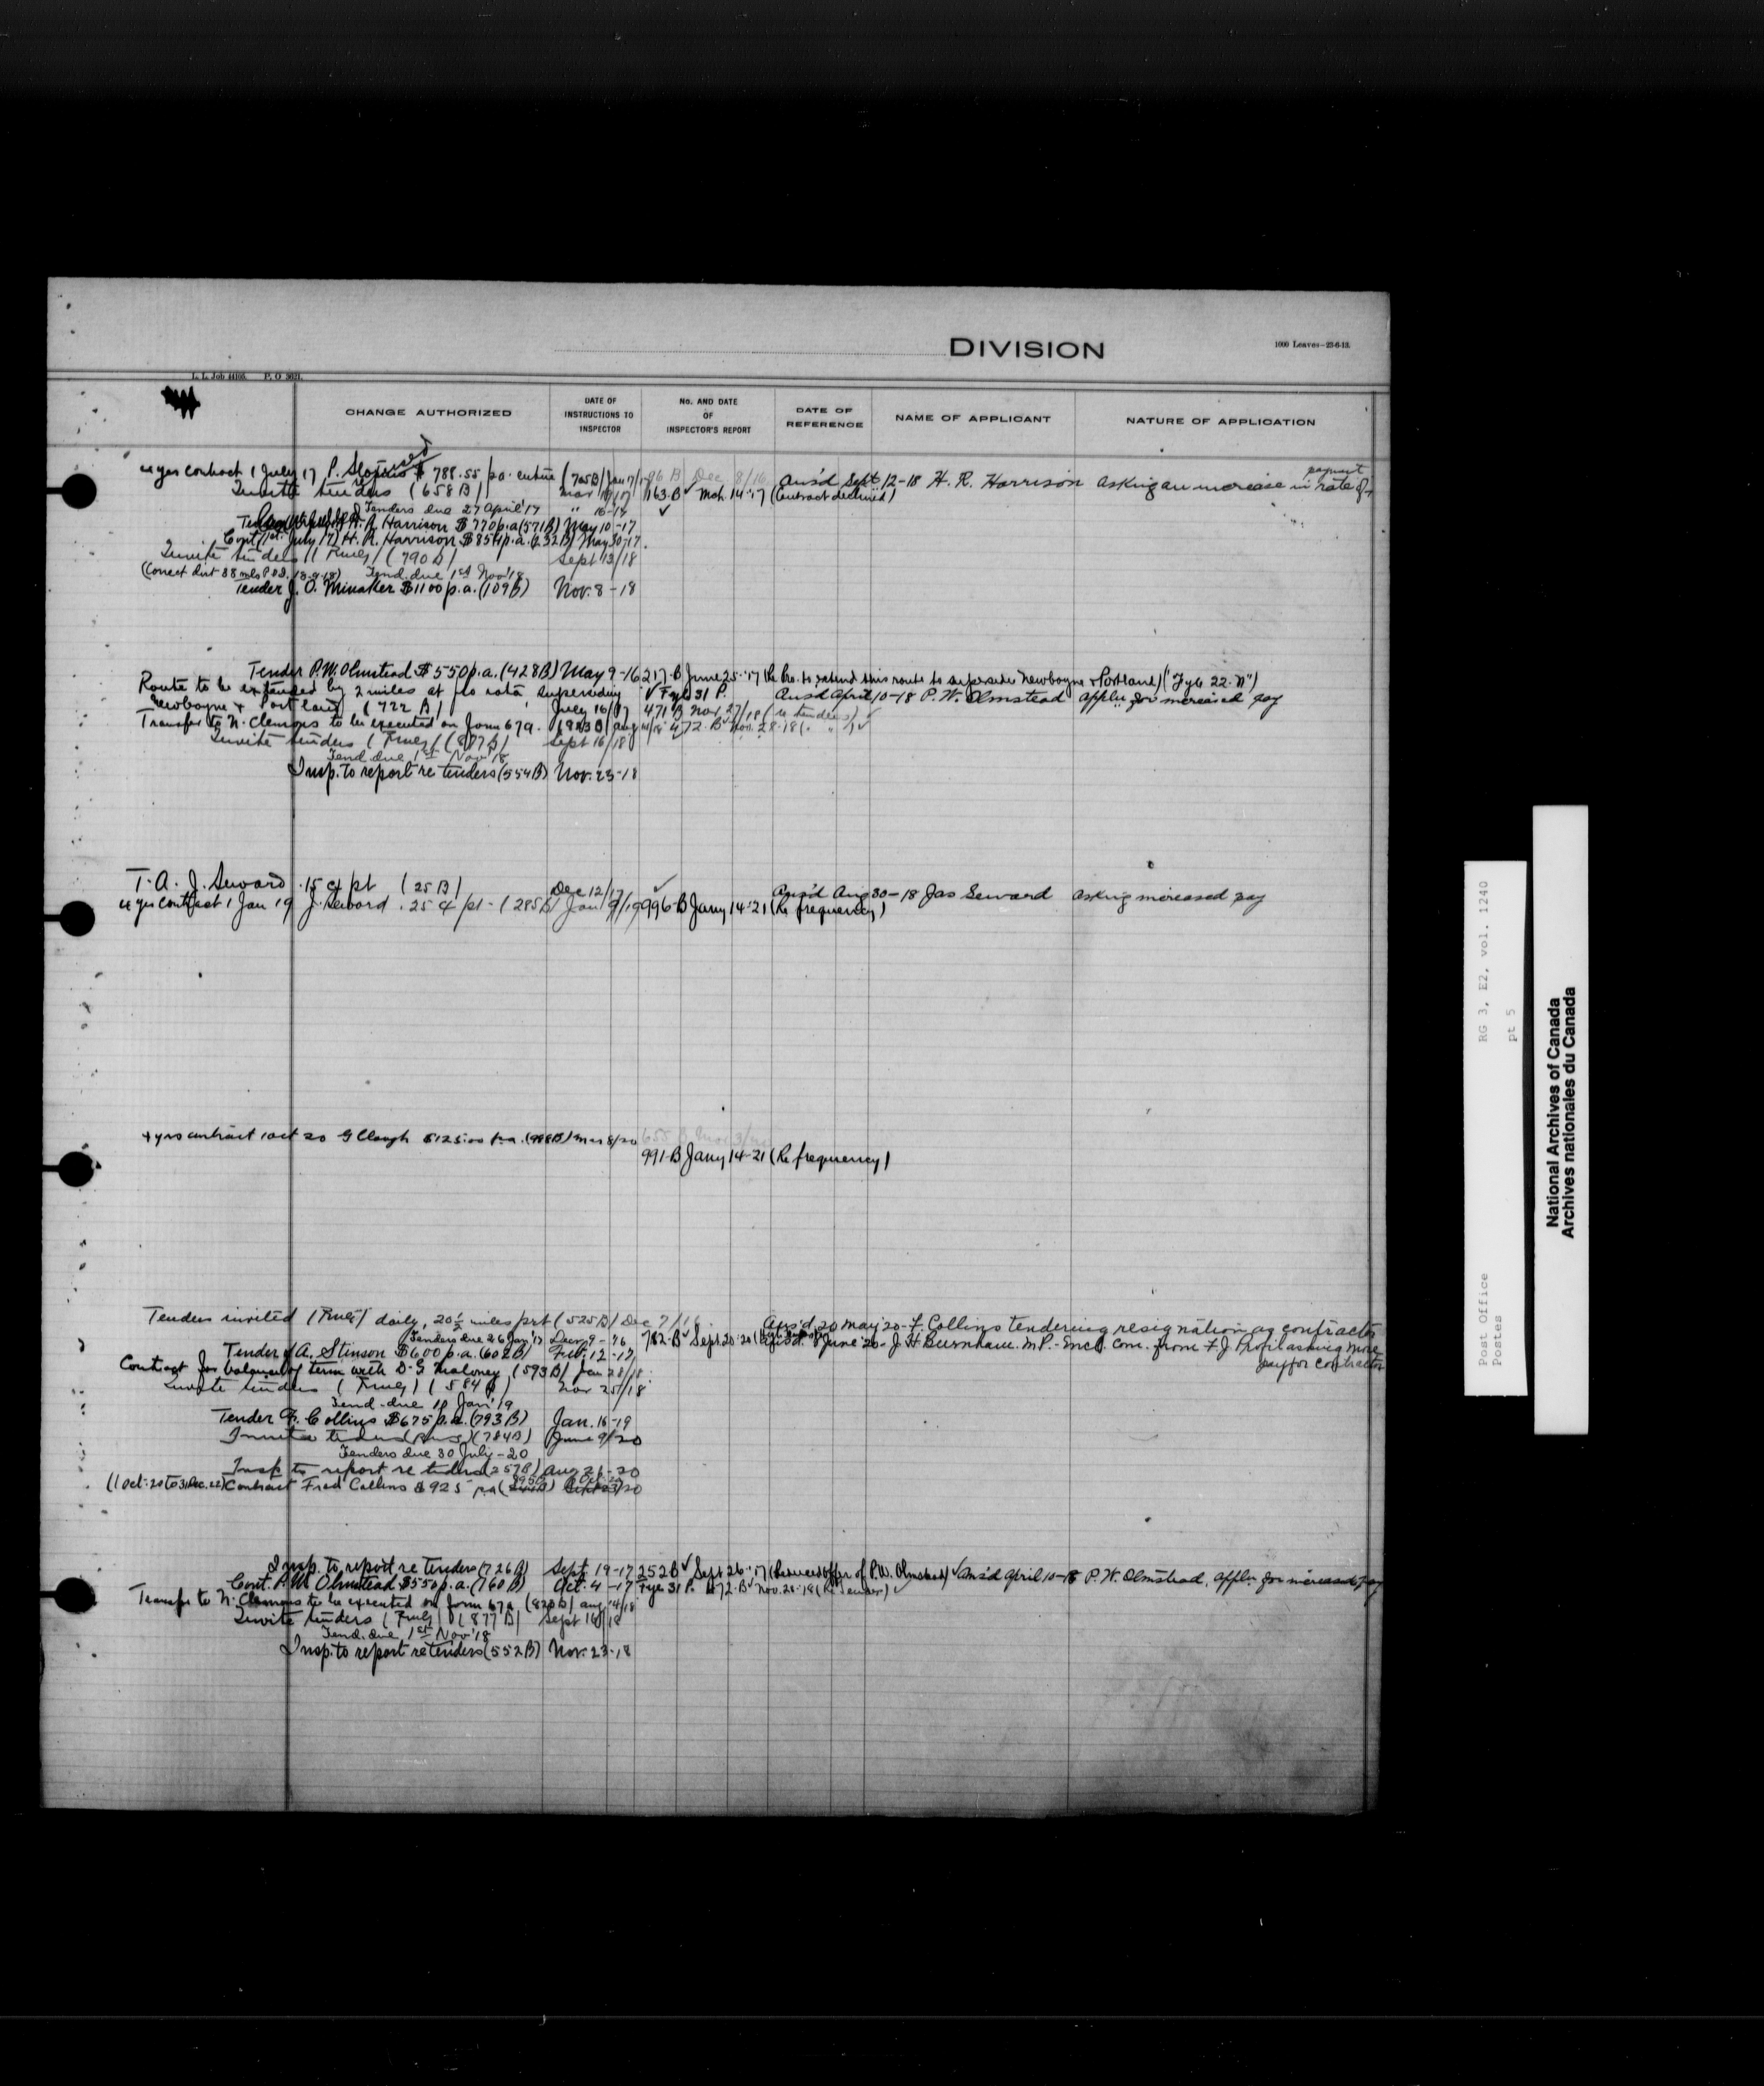 DIVISION
1000 Leaves-23-6-13.
L. L. Job 44105. P. O 3621.
CHANGE AUTHORIZED
DATE OF INSTRUCTIONS TO INSPECTOR
No. AND DATE OF INSPECTOR'S REPORT
DATE OF REFERENCE
NAME OF APPLICANT
NATURE OF APPLICATION
4 yrs contract 1 July 17 P. $ 788.55 pa. entire (705B) Jan 17/17 96 B Dec 8/16 Ans'd Sept 12-18 H. R. Harrison asking an increase in rate of payment
Invite tenders (658 B) Mar 163-B ✓ Mch. 14-'17 (Contract declined)
Tenders due 27 April '17 " 16-17 ✓
H. R. Harrison $770 p.a. (571B) May 10-17
Cont. (1st July 17) H. R. Harrison $854 p.a. (232B) May 30-17.
Invite tenders (Rural) (790 B) Sept 13/18
(Correct dist 38 mls P.O.D. 13-9-18) Tend. due 1st Nov '18
Tender J. O. Minaker $1100 p.a. (109B) Nov. 8-18
Tender P. W. Olmstead $550 p.a. (428B) May 9-16 217-B June 25-'17 (Re Pro. to extend this route to supersede Newboyne & Portland) ("Fyle 22-N")
Route to be extended by 2 miles at pro rata superseding ✓ Fyle 31 P. Ans'd April 10-18 P. W. Olmstead appln for increased pay
Newboyne & Portland (722 B) July 16/17 471 B Nov 27/18 (re tenders) ✓
Transfer to N. Clemons to be executed on form 67a. (823 B) Aug 14/18 472-B ✓ Nov. 28-18 ( " " ) ✓
Invite tenders (Rural) (877 B) Sept 16/18
Tend due 1st Nov '18
Insp. to report re tenders (554B) Nov. 23-18
T. A. J. Seward .15 c/ pt (25 B) Dec 12/17 ✓ Ans'd Aug 30-18 Jas Seward asking increased pay
4 yrs contract 1 Jan 19 J. Seward .25 c/ pt - (285B) Jan 9/19 996-B Jany 14-'21 (Re frequency)
4 yrs contract 1 Oct 20 G Clough $125.00 p.a. (988B) Mar 8/20 655 B Mar 3/20
991-B Jany 14-21 (Re frequency)
Tenders invited (Rural) daily, 20 1/2 miles/prt (525B) Dec 7/16. Ans'd 20 May '20 - F. Collins tendering resignation as contractor
Tenders due 26 Jan '17 Decr. 9-16 782-B ✓ Sept. 20-20 Ans'd. 8 June '20 - J H Burnham. M.P. - Encl. Com. from F J asking more
Tender of A. Stinson $600 p.a. (602B) Feb. 12-17 pay for contractor
Contract for balance of term with D. G Maloney (593B) Jan 28/18.
Invite tenders (Rural) (584 B) Nov 25/18
Tend. due 10 Jan '19
Tender F. Collins $675 p.a. (793B) Jan. 16-19
Invite tenders (Rural) (784B) June 9/20
Tenders due 30 July-20
Insp to report re tenders (257B) Aug 21-20
(1 Oct-20 to 31 Dec. 22) Contract Fred Collins $925 pa Sept 23/20
Insp. to report re tenders (726B) Sept. 19-17 252B ✓ Sept. 26-'17 (Reduced offer of P.W. Olmstead) ✓ Ans'd April 10-18 P. W. Olmstead, appln for increased pay
Cont. P. W. Olmstead $550 p.a. (760 B) Oct. 4-17 Fyle 31 P. 472-B ✓ Nov. 28-18 (Re tender) ✓
Transfer to N. Clemons to be executed on form 67a (823B) Aug 14/18
Invite tenders (Rural) (877 B) Sept 16/18
Tend. due 1st Nov '18
Insp. to report re tenders (552B) Nov. 23-18
Post Office
Postes
RG 3, E2, vol. 1240
pt 5
National Archives of Canada
Archives nationales du Canada